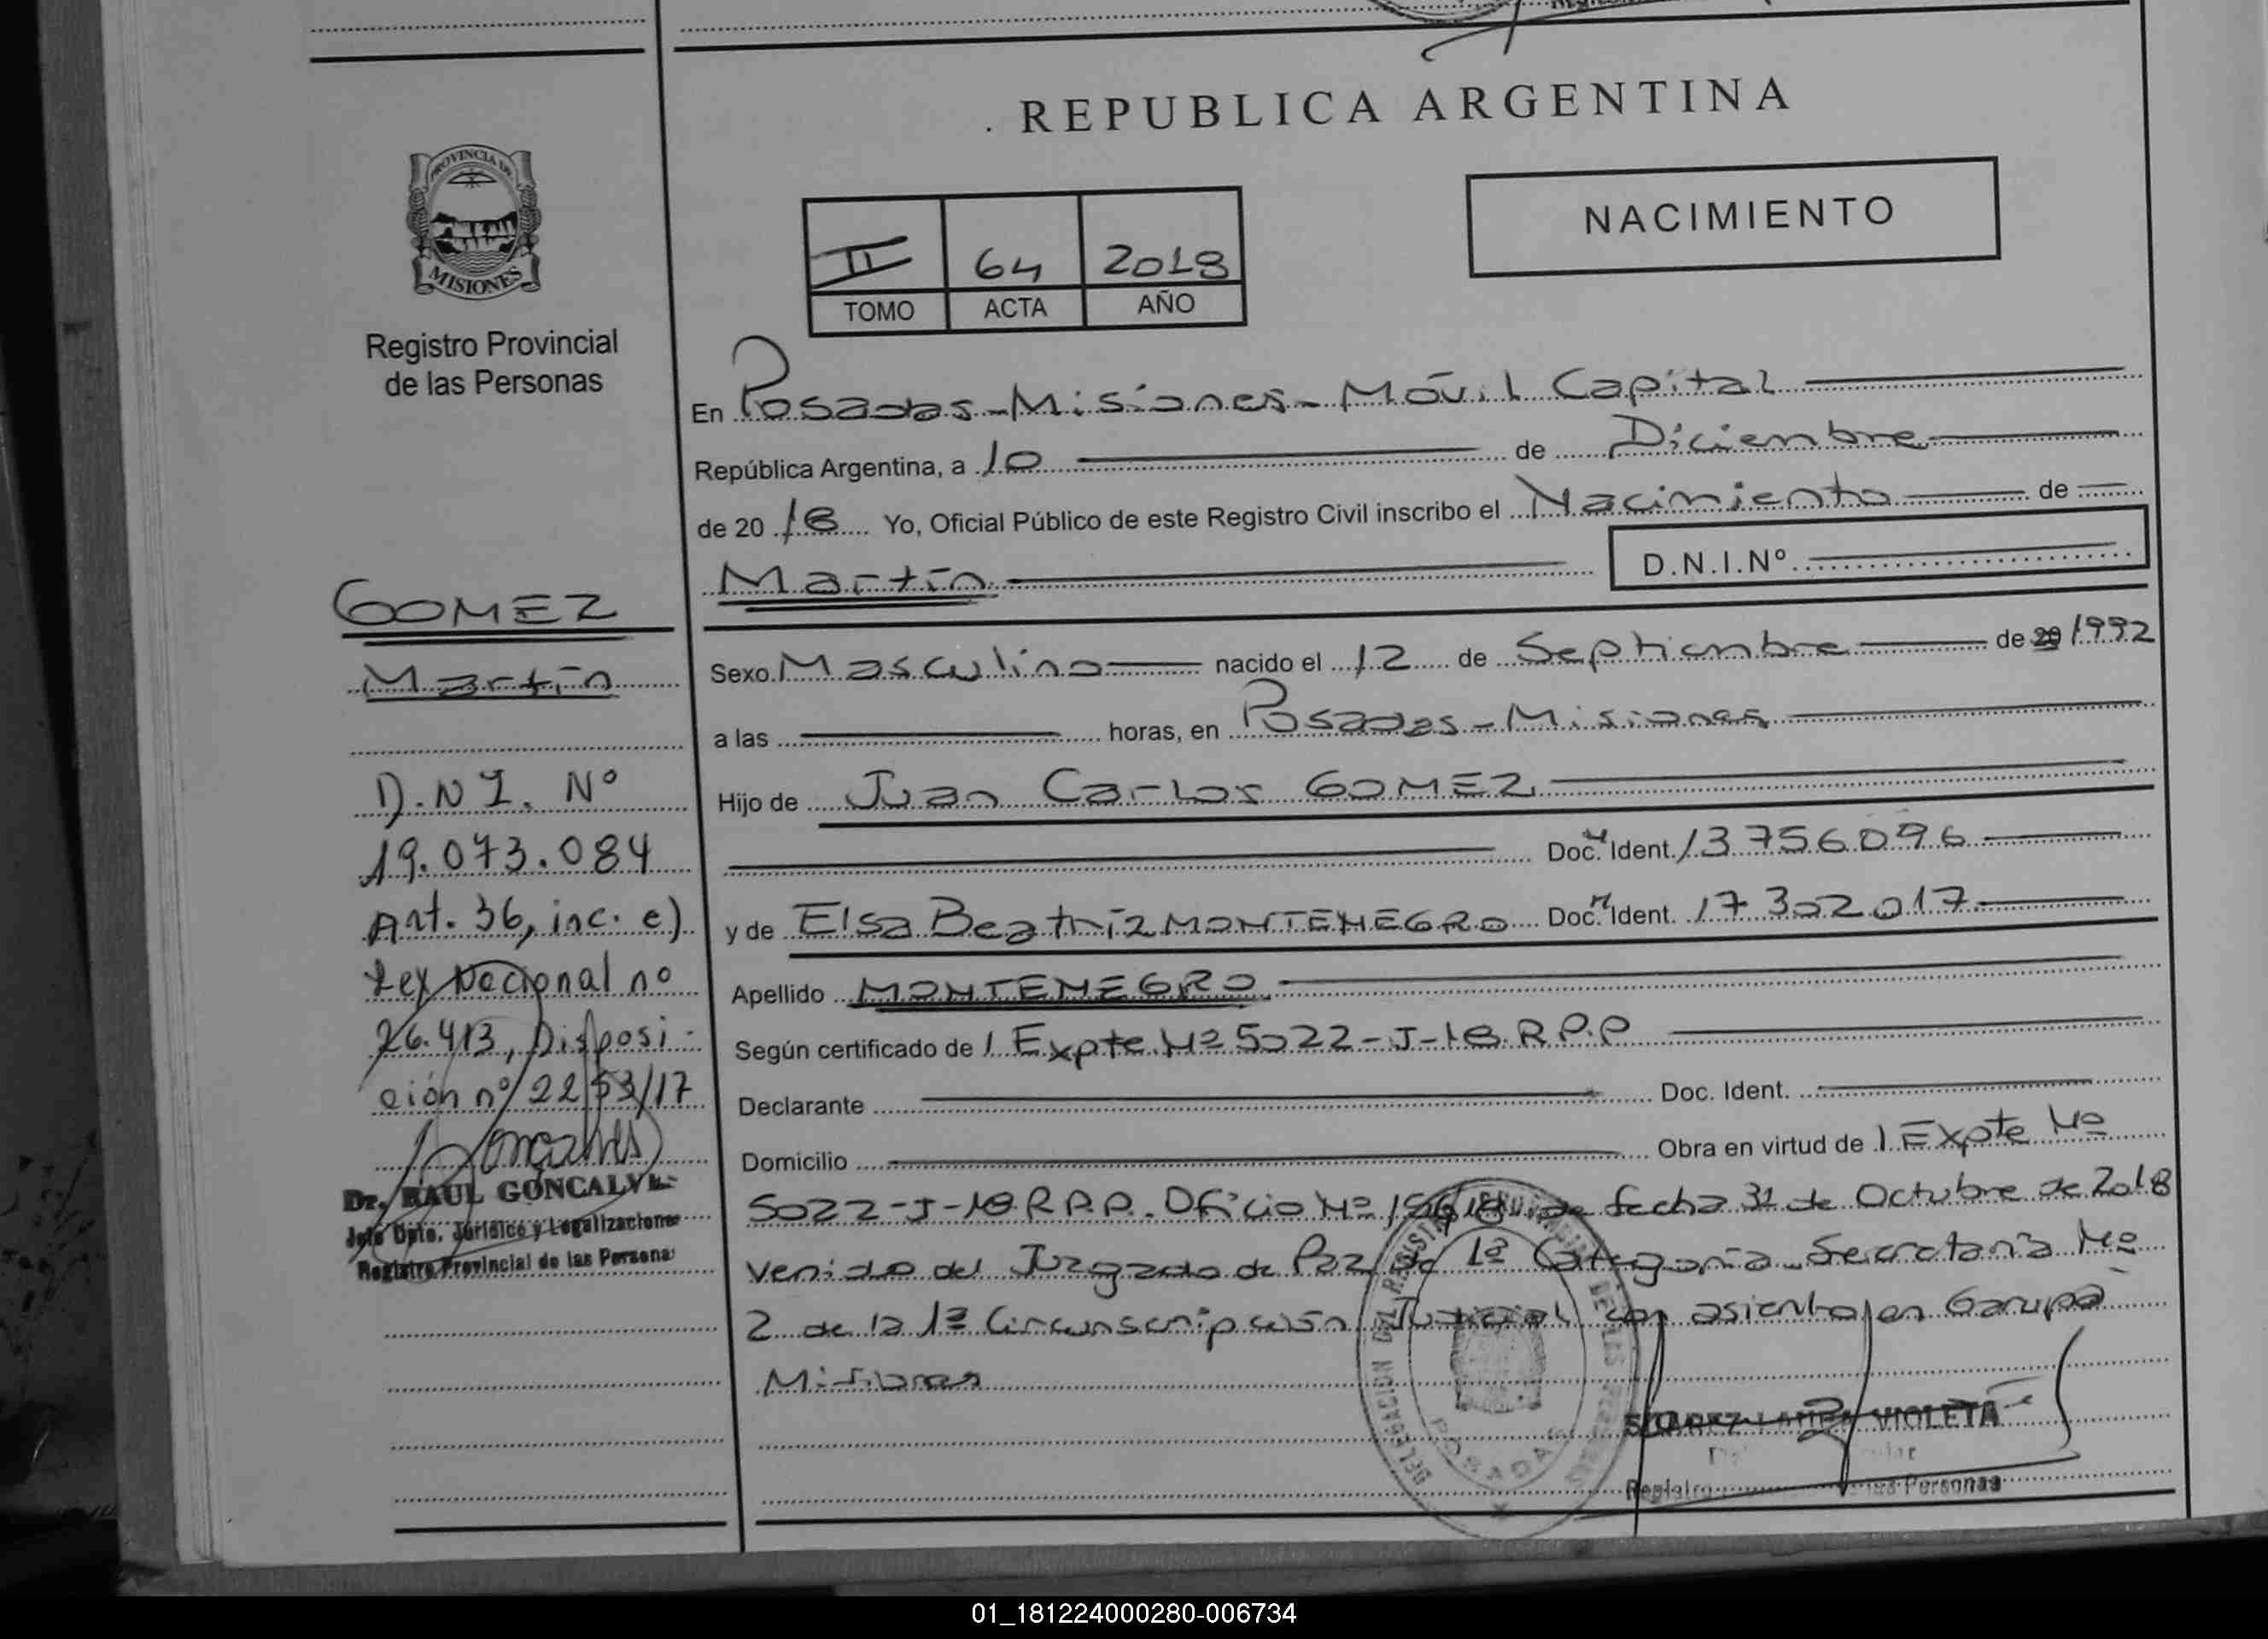 REPUBLICA ARGENTINA
PROVINCIA DE
MISIONES
Registro Provincial
de las Personas
NACIMIENTO
II 64 2018
TOMO ACTA AÑO
En Posadas-Misiones-Móvil Capital
República Argentina, a 10 de Diciembre
de 20 18 Yo, Oficial Público de este Registro Civil inscribo el Nacimiento de
Martín D.N.I.Nº
Sexo Masculino nacido el 12 de Septiembre de 1992
a las horas, en Posadas-Misiones
Hijo de Juan Carlos GOMEZ
Doc. Ident. 13756096
y de Elsa Beatriz MONTENEGRO Doc. Ident. 17302017
Apellido MONTENEGRO
Según certificado de / Expte Nº 5022-J-18 R.P.P
Declarante Doc. Ident.
Domicilio Obra en virtud de / Expte Nº
5022-J-18 R.P.P. Oficio Nº fecha 31 de Octubre de 2018
venido del Juzgado de Paz de 1ª Categoría Secretaría Nº
2 de la 1ª Circunscripción Judicial con asiento en Garupá
Misiones
GOMEZ
Martín
D.N.I. Nº
19.073.084
Art. 36, inc. e)
Ley Nacional nº
26.413, Disposi-
ción nº 2253/17
Dr. RAUL GONCALVES
Jefe Dpto. Jurídico y Legalizaciones
Registro Provincial de las Personas
POSADAS
VIOLETA
Registro Personas
01_181224000280-006734